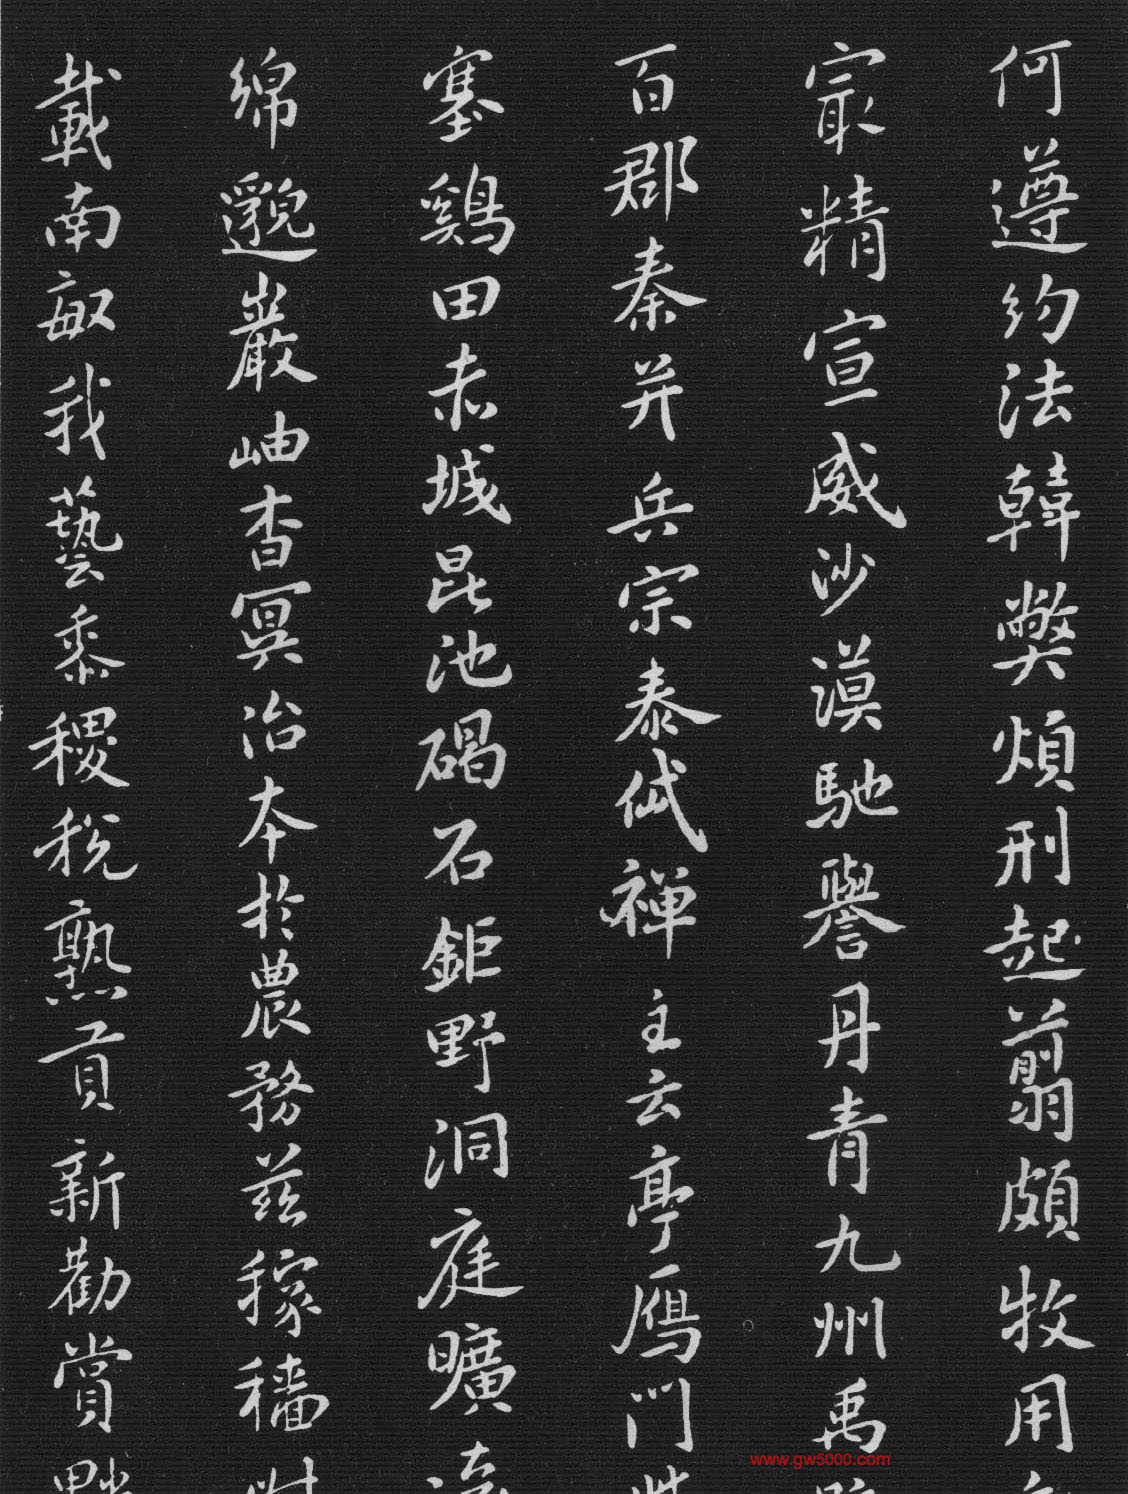 何遵約法韓弊煩刑起翦頗牧用
寂精宣威沙漠馳譽丹青九州禹
百郡秦并兵宗泰岱禅主云亭鴈門
塞鷄田赤城昆池碣石鉅野洞庭曠
綿邈巖岫杳冥治本於農務茲稼穡
載南畝我藝黍稷稅熟貢新勸賞
www.gw5000.com